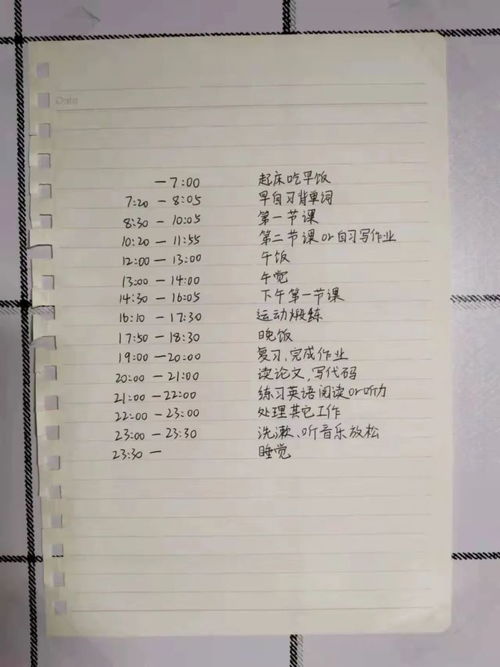 Date
—7:00 起床吃早饭
7:20 — 8:05 早自习背单词
8:30 — 10:05 第一节课
10:20 — 11:55 第二节课 or 自习写作业
12:00 — 13:00 午饭
13:00 — 14:00 午觉
14:30 — 16:05 下午第一节课
16:10 — 17:30 运动锻练
17:50 — 18:30 晚饭
19:00 — 20:00 复习、完成作业
20:00 — 21:00 读论文、写代码
21:00 — 22:00 练习英语阅读 or 听力
22:00 — 23:00 处理其它工作
23:00 — 23:30 洗漱、听音乐放松
23:30 — 睡觉